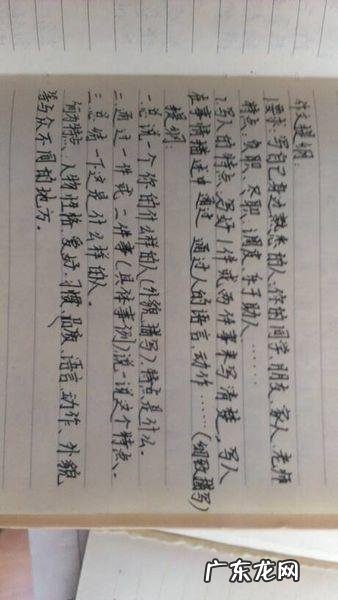 作文提纲:
1.要求:写自己身边熟悉的人、你的同学、朋友、家人、老师
特点、负职、尽职、调皮、乐于助人……
2.写人的特点,还要好1件或两件事来写清楚,写人
在事情描述中通过 通过人的语言、动作……(细致描写)
提纲:
一.总说一个你的什么样的人(外貌描写),特点是什么。
二.通过一件或二件事(具体事例),说一说这个特点。
三.总结一下这是什么样的人。
何为特点:人物性格、爱好、习惯、品质、语言、动作、外貌
等与众不同的地方。
广东龙网